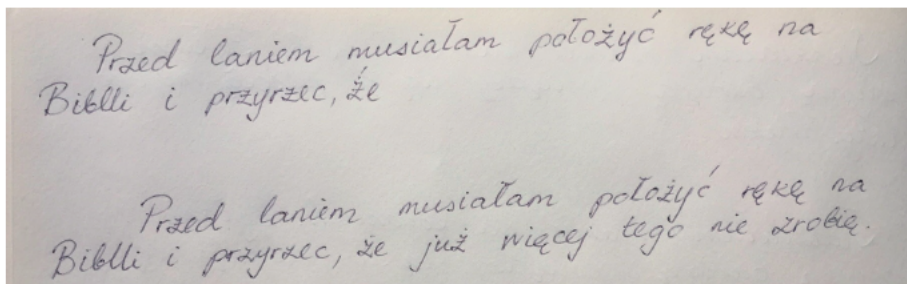 Przed laniem musiałam położyć rękę na
Biblli i przyrzec, że
Przed laniem musiałam położyć rękę na
Biblli i przyrzec, że już więcej tego nie zrobię.